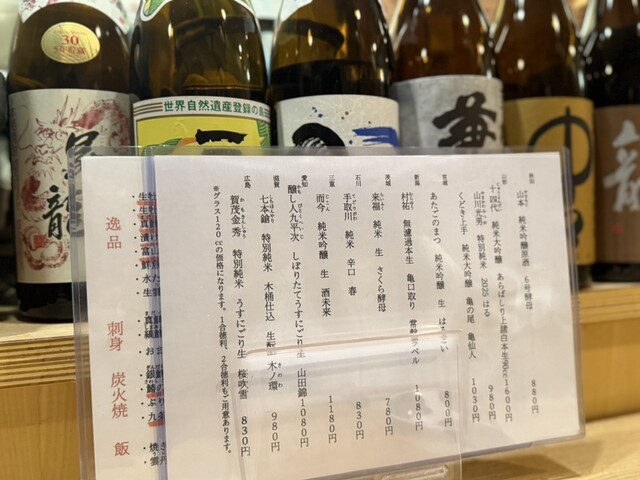 30
5年貯蔵
世界自然遺産登録の島
龍
秋田
山本 純米吟醸原酒 6号酵母 880円
山形
十四代 純米大吟醸 あらばしり上諸白本生90cc 1600円
山川光男 特別純米 2025 はる 980円
くどき上手 純米大吟醸 亀の尾 亀仙人 1030円
宮城
あたごのまつ 純米吟醸 生 はるこい 800円
新潟
村祐 無濾過本生 亀口取り 常盤ラベル 1080円
茨城
来福 純米 生 さくら酵母 780円
石川
手取川 純米 辛口 春 830円
三重
而今 純米吟醸 生 酒未来 1180円
愛知
醸し人九平次 しぼりたてうすにごり生 山田錦 1080円
滋賀
七本鎗 特別純米 木桶仕込 生 木ノ環 980円
広島
賀茂金秀 特別純米 うすにごり生 桜吹雪 830円
※グラス120ccの価格になります。1合徳利、2合徳利もご用意あります。
逸品
刺身
炭火焼
飯